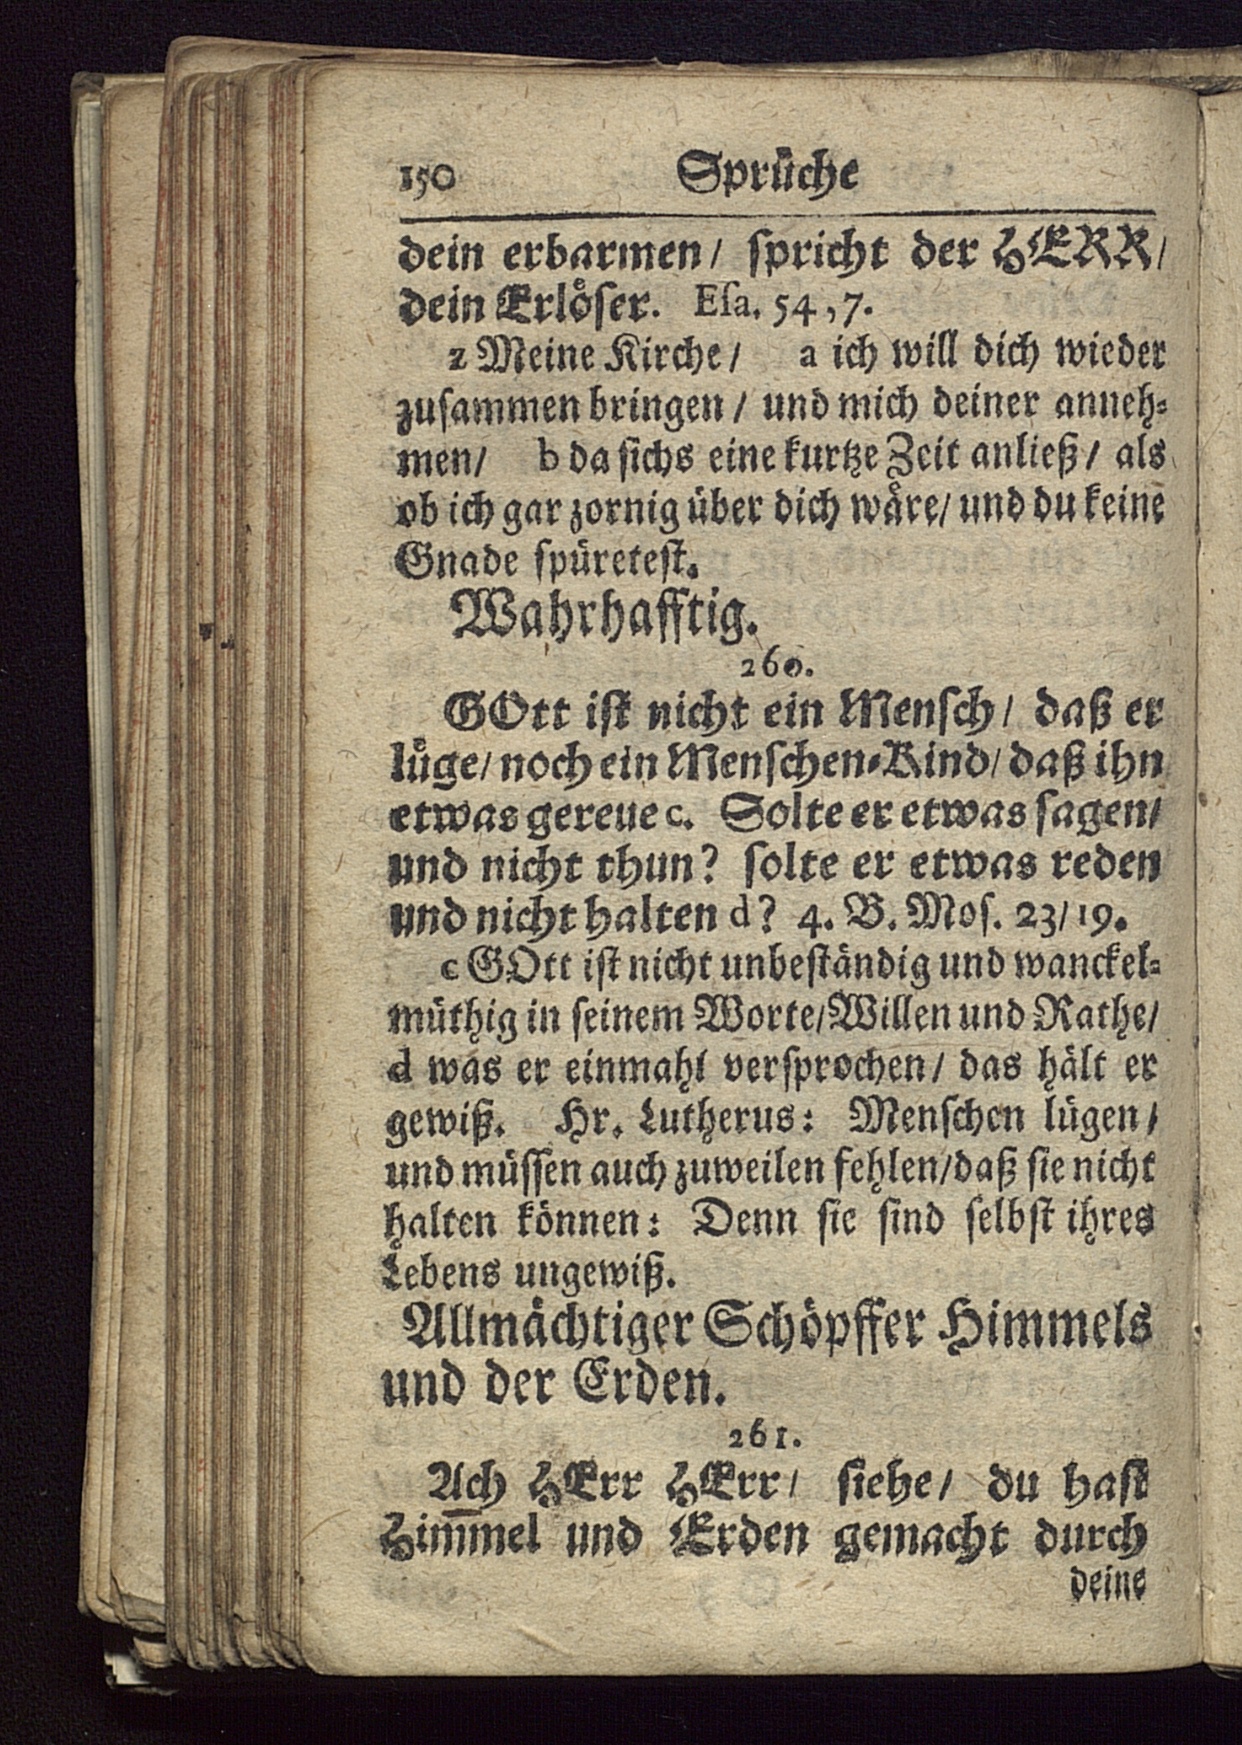 150 Sprüche
dein erbarmen/ spricht der HERR/
dein Erlöſer. Eſa. 54,7.
z Meine Kirche/ a ich will dich wieder
zuſammen bringen/ und mich deiner anneh⸗
men/ b da ſichs eine kurtze Zeit anließ/ als
ob ich gar zornig über dich wåre/ und du keine
Gnade ſpüreteſt.
Wahrhafftig.
260.
GOtt iſt nicht ein Menſch/ daß er
lůge/ noch ein Menſchen⸗Kind/ daß ihn
etwas gereue c. Solte er etwas ſagen/
und nicht thun? ſolte er etwas reden
und nicht halten d? 4. B. Moſ. 23/19.
c GOtt iſt nicht unbeſtändig und wanckel⸗
müthig in ſeinem Worte/ Willen und Rathe/
d was er einmahl verſprochen/ das hält er
gewiß. Hr. Lutherus: Menſchen lügen/
und müſſen auch zuweilen fehlen/ daß ſie nicht
halten können: Denn ſie ſind ſelbſt ihres
Lebens ungewiß.
Allmåchtiger Schöpffer Himmels
und der Erden.
261.
Ach HErr HErr/ ſiehe/ du haſt
Him̅mel und Erden gemacht durch
deine